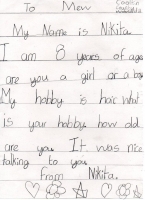 To Mew
My Name is Nikita.
I am 8 years of age
are you a girl or a boy
My hobby is hair what
is your hobby how old
are you It. was nice
talking to you
from Nikita.